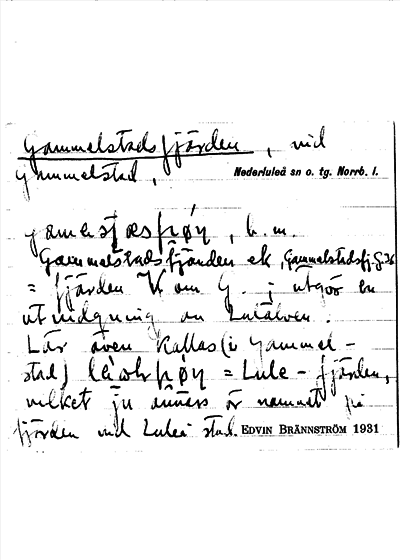 Gammelstadsfjärden, vid
Gammelstad, Nederluleå sn o. tg. Norrb. l.
b. m.
Gammelstadsfjärden ek, Gammelstadsfj. G.
= fjärden V om G. j utgör en
utvidgning av Luleälven.
Lär även kallas (i Gammel-
stad) = Lule-fjärden,
vilket ju annars är namnet på
fjärden vid Luleå stad. EDVIN BRÄNNSTRÖM 1931